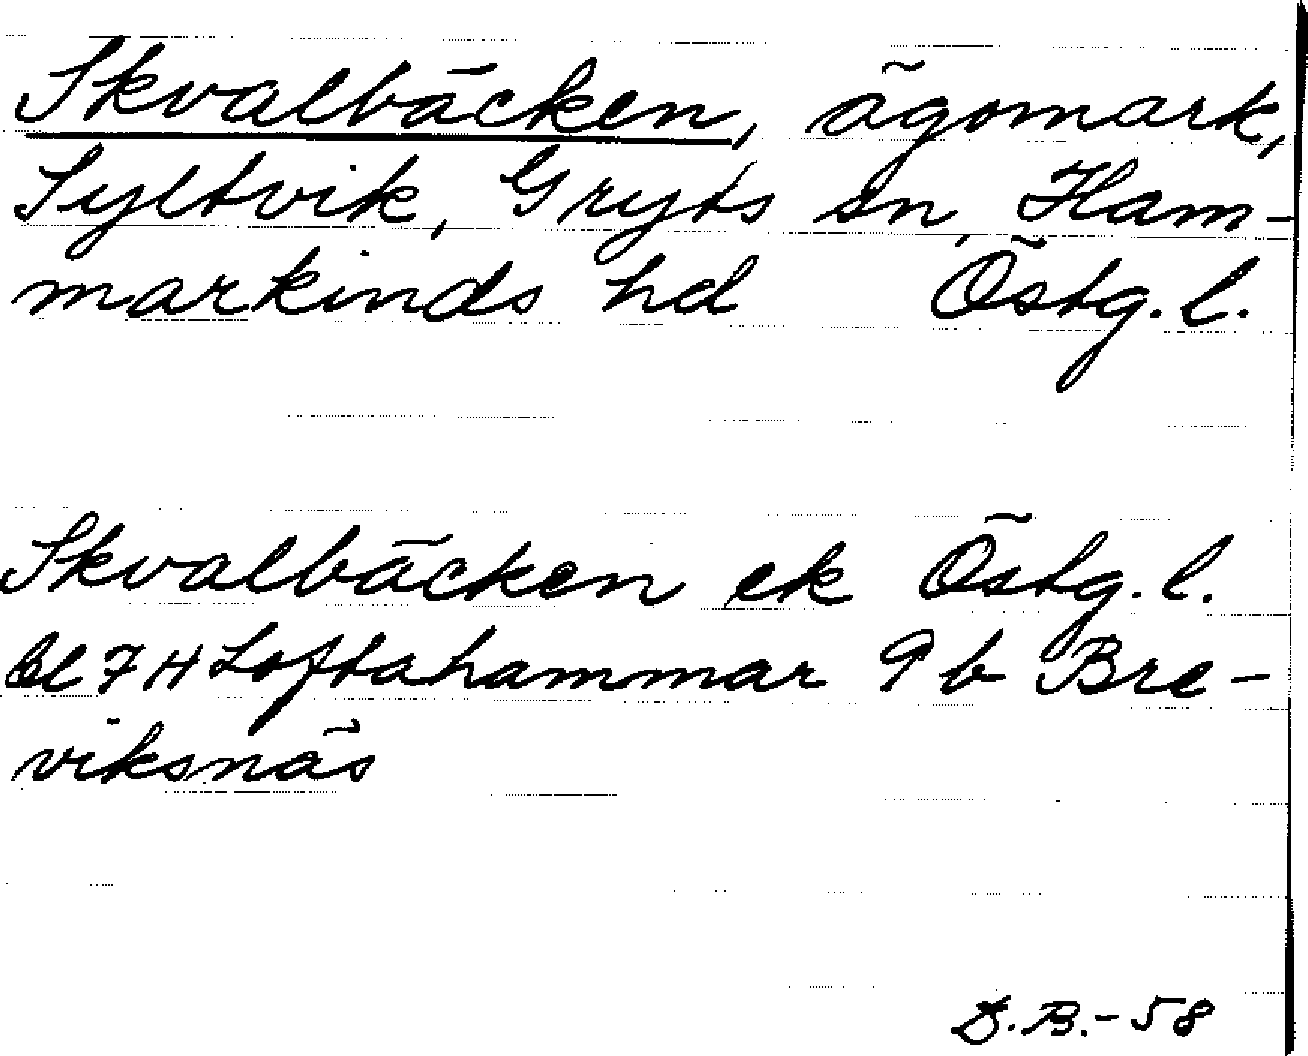 Skvalbäcken, ägomark,
Syltvik, Gryts sn, Ham-
markinds hd Östg. l.
Skvalbäcken ek Östg. l.
Bl 7 H Loftahammar 9 b Bre-
viksnäs
D.B.-58